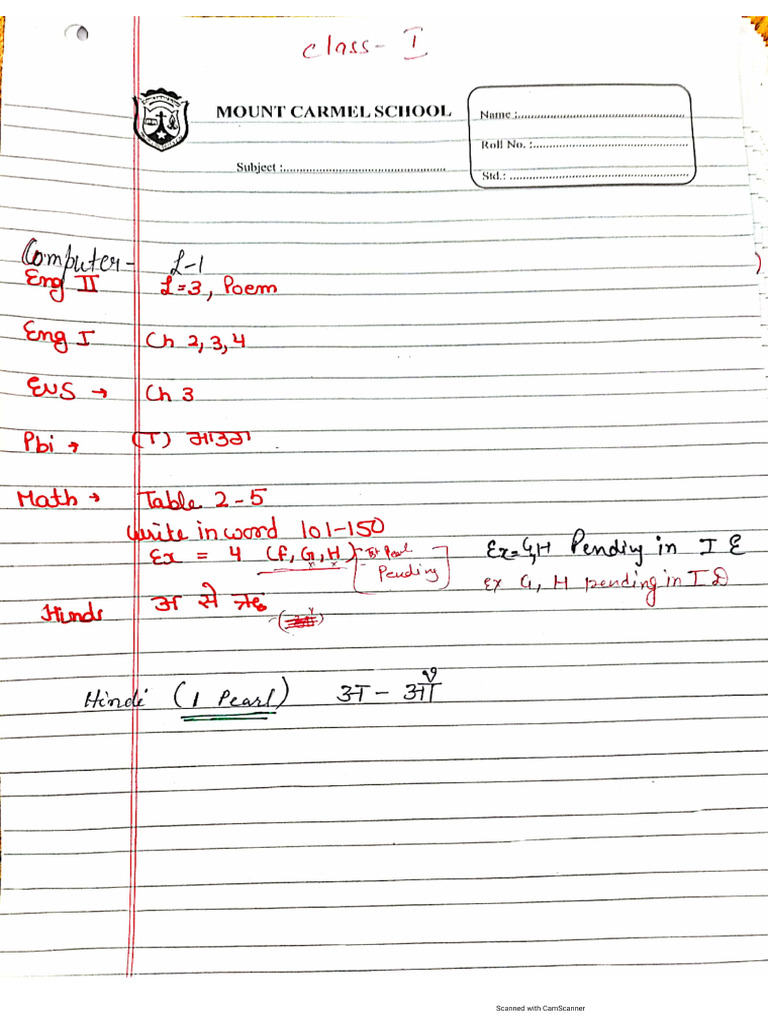 Class - I
MOUNT CARMEL SCHOOL
Name :
Roll No. :
Subject :
Std.:
Computer - L-1
Eng II L=3, Poem
Eng I Ch 2,3,4
EVS → Ch 3
Pbi → (T) ਸਾਤਰਾ
Math → Table 2-5
Write in word 101-150
Ex = 4 (F, G, H) Ist Pearl Pending
Ex=G,H Pending in I E
Ex G, H pending in I D
Hindi अ से ऋ
Hindi (1 Pearl) अ - ऑ
Scanned with CamScanner